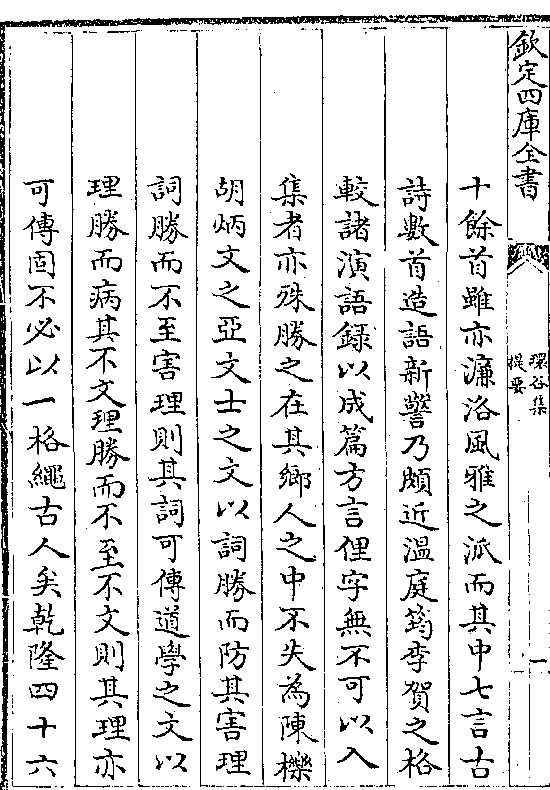 欽定四庫全書
環谷集
提要
一
十餘首雖亦濂洛風雅之派而其中七言古
詩數首造語新警乃頗近溫庭筠李賀之格
較諸演語録以成篇方言俚字無不可以入
集者亦殊勝之在其鄉人之中不失為陳櫟
胡炳文之亞文士之文以詞勝而防其害理
詞勝而不至害理則其詞可傳道學之文以
理勝而病其不文理勝而不至不文則其理亦
可傳固不必以一格繩古人矣乾隆四十六